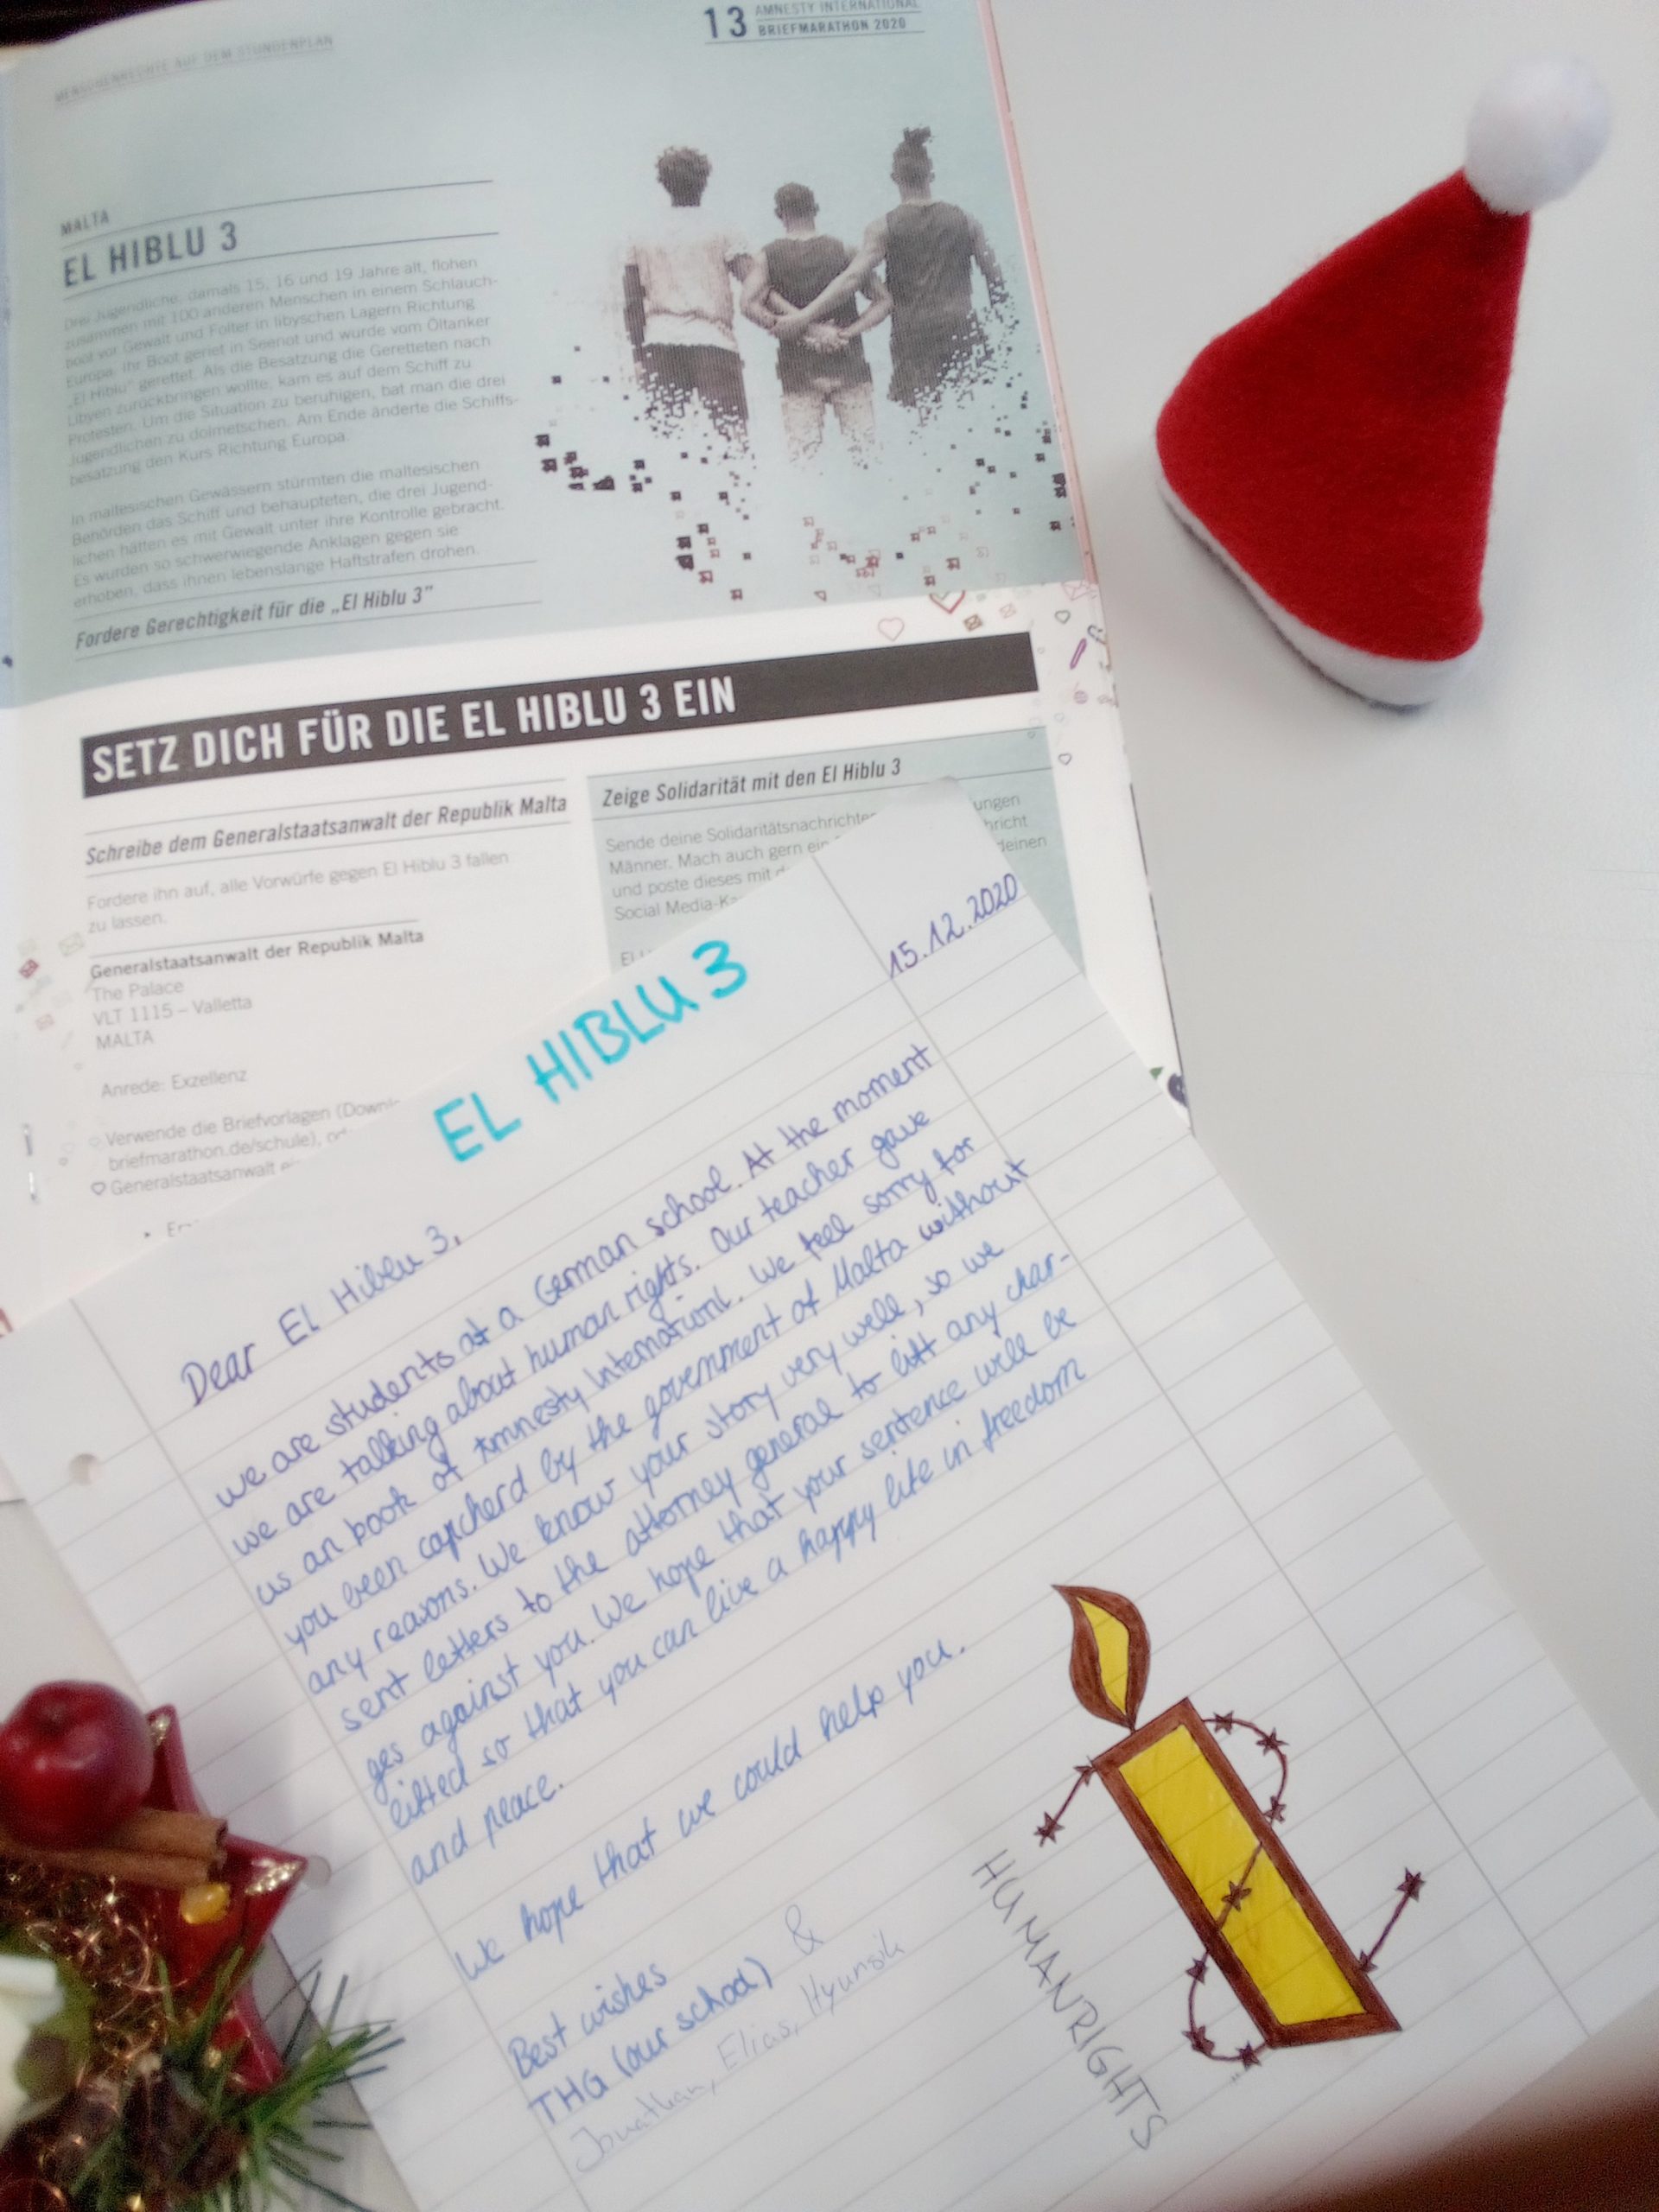 MENSCHENRECHTE AUF DEM STUNDENPLAN
13
AMNESTY INTERNATIONAL
BRIEFMARATHON 2020
MALTA
EL HIBLU 3
Drei Jugendliche, damals 15, 16 und 19 Jahre alt, flohen
zusammen mit 100 anderen Menschen in einem Schlauch-
boot vor Gewalt und Folter in libyschen Lagern Richtung
Europa. Ihr Boot geriet in Seenot und wurde vom Öltanker
„El Hiblu" gerettet. Als die Besatzung die Geretteten nach
Libyen zurückbringen wollte, kam es auf dem Schiff zu
Protesten. Um die Situation zu beruhigen, bat man die drei
Jugendlichen zu dolmetschen. Am Ende änderte die Schiffs-
besatzung den Kurs Richtung Europa.
In maltesischen Gewässern stürmten die maltesischen
Behörden das Schiff und behaupteten, die drei Jugend-
lichen hätten es mit Gewalt unter ihre Kontrolle gebracht.
Es wurden so schwerwiegende Anklagen gegen sie
erhoben, dass ihnen lebenslange Haftstrafen drohen.
Fordere Gerechtigkeit für die „El Hiblu 3"
SETZ DICH FÜR DIE EL HIBLU 3 EIN
Schreibe dem Generalstaatsanwalt der Republik Malta
Fordere ihn auf, alle Vorwürfe gegen El Hiblu 3 fallen
zu lassen.
Generalstaatsanwalt der Republik Malta
The Palace
VLT 1115 – Valletta
MALTA
Anrede: Exzellenz
Verwende die Briefvorlagen (Downl
briefmarathon.de/schule), od
Generalstaatsanwalt ei
Zeige Solidarität mit den El Hiblu 3
Sende deine Solidaritätsnachrichten ungen
Männer. Mach auch gern ein hricht
und poste dieses mit d deinen
Social Media-Ka
EL HIBLU 3
15.12.2020
Dear El Hiblu 3,
we are students at a German school. At the moment
we are talking about human rights. Our teacher gave
us an book of Amnesty Internationl. We feel sorry for
you been capcherd by the government of Malta without
any reasons. We know your story very well, so we
sent letters to the attorney general to lift any char-
ges against you. We hope that your sentence will be
lifted so that you can live a happy life in freedom
and peace.
We hope that we could help you.
Best wishes
THG (our school) &
Jonathan, Elias, Hyunsik
HUMANRIGHTS